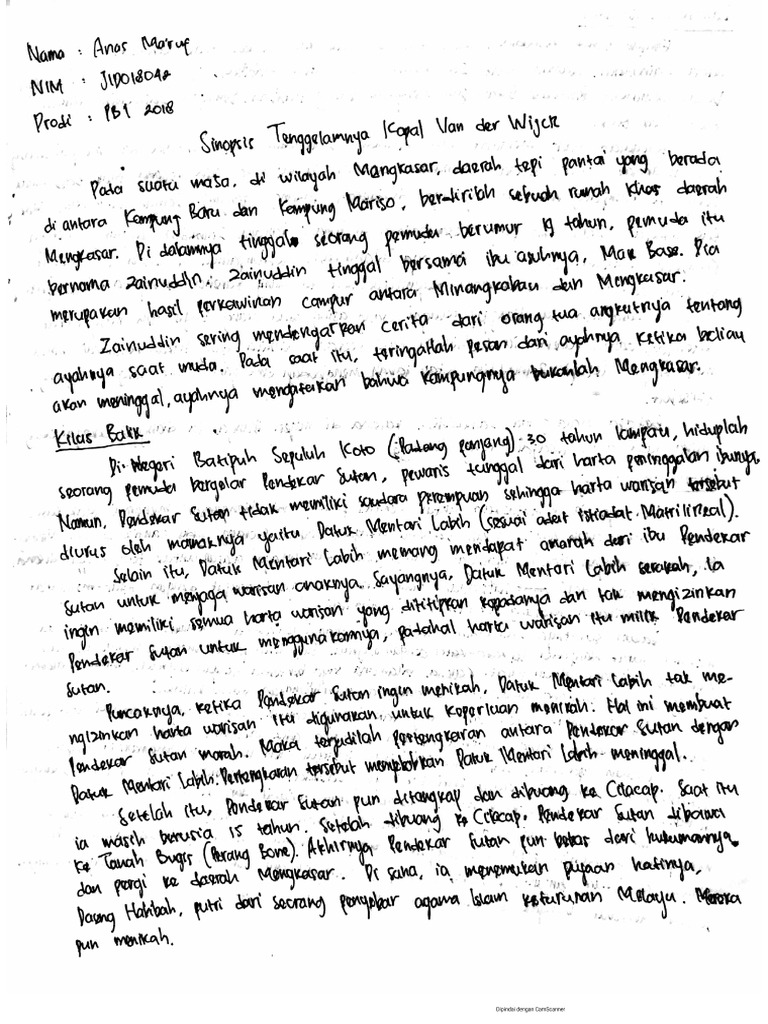 Nama : Anas Ma'ruf
NIM : J1D018042
Prodi : PBI 2018
Sinopsis Tenggelamnya Kapal Van der Wijck
Pada suatu masa, di wilayah Mangkasar, daerah tepi pantai yang berada
di antara Kampung Baru dan Kampung Mariso, berdirilah sebuah rumah khas daerah
Mengkasar. Di dalamnya tinggal seorang pemuda berumur 19 tahun, pemuda itu
bernama Zainuddin. Zainuddin tinggal bersama ibu asuhnya, Mak Base. Dia
merupakan hasil perkawinan campur antara Minangkabau dan Mengkasar.
Zainuddin sering mendengarkan cerita dari orang tua angkutnya tentang
ayahnya saat muda. Pada saat itu, teringatlah pesan dari ayahnya ketika beliau
akan meninggal, ayahnya mengatakan bahwa kampungnya bukanlah Mengkasar.
Kilas Balik
Di Negeri Batipuh Sepuluh Koto (Padang panjang) 30 tahun lampau, hiduplah
seorang pemuda bergelar Pendekar Sutan, pewaris tunggal dari harta peninggalan ibunya.
Namun, Pendekar Sutan tidak memiliki saudara perempuan sehingga harta warisan tersebut
diurus oleh mamaknya yaitu Datuk Mentari Labih (sesuai adat istiadat Matrilineal).
Selain itu, Datuk Mentari Labih memang mendapat amarah dari ibu Pendekar
Sutan untuk menjaga warisan anaknya. Sayangnya, Datuk Mentari Labih serakah, ia
ingin memiliki semua harta warisan yang dititipkan kepadanya dan tak mengizinkan
Pendekar Sutan untuk menggunakannya, padahal harta warisan itu milik Pendekar
Sutan.
Puncaknya, ketika Pendekar Sutan ingin menikah, Datuk Mentari Labih tak me-
ngizinkan harta warisan itu digunakan untuk keperluan menikah. Hal ini membuat
Pendekar Sutan marah. Maka terjadilah pertengkaran antara Pendekar Sutan dengan
Datuk Mentari Labih. Pertengkaran tersebut menyebabkan Datuk Mentari Labih meninggal.
Setelah itu, Pendekar Sutan pun ditangkap dan dibuang ke Cilacap. Saat itu
ia masih berusia 15 tahun. Setelah dibuang ke Cilacap, Pendekar Sutan dibawa
ke Tanah Bugis (Perang Bone). Akhirnya Pendekar Sutan pun bebas dari hukumannya
dan pergi ke daerah Mengkasar. Di sana, ia menemukan pujaan hatinya,
Daeng Habibah, putri dari seorang penyebar agama Islam keturunan Melayu. Mereka
pun menikah.
Dipindai dengan CamScanner